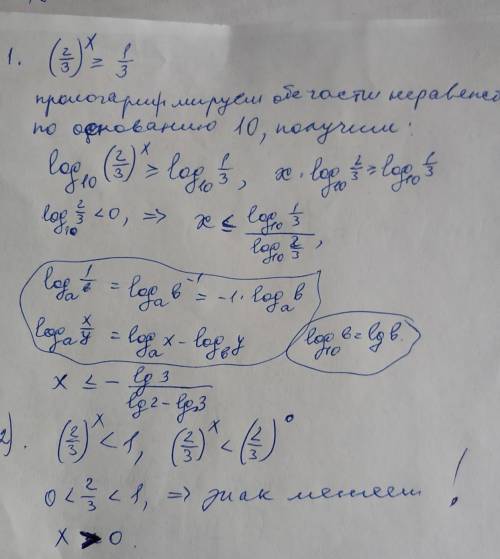 1. (2/3)^x ≥ 1/3
прологарифмируем обе части неравенс
по основанию 10, получим:
log₁₀ (2/3)^x ≥ log₁₀ 1/3, x · log₁₀ 2/3 ≥ log₁₀ 1/3
log₁₀ 2/3 < 0, => x ≤ (log₁₀ 1/3)/(log₁₀ 2/3),
logₐ 1/в = logₐ в⁻¹ = -1 · logₐ в
logₐ x/y = logₐ x - log_в y log₁₀ в = lg в.
x ≤ - lg 3/(lg 2 - lg 3)
2). (2/3)^x < 1, (2/3)^x < (2/3)⁰
0 < 2/3 < 1, => знак меняем !
x > 0.